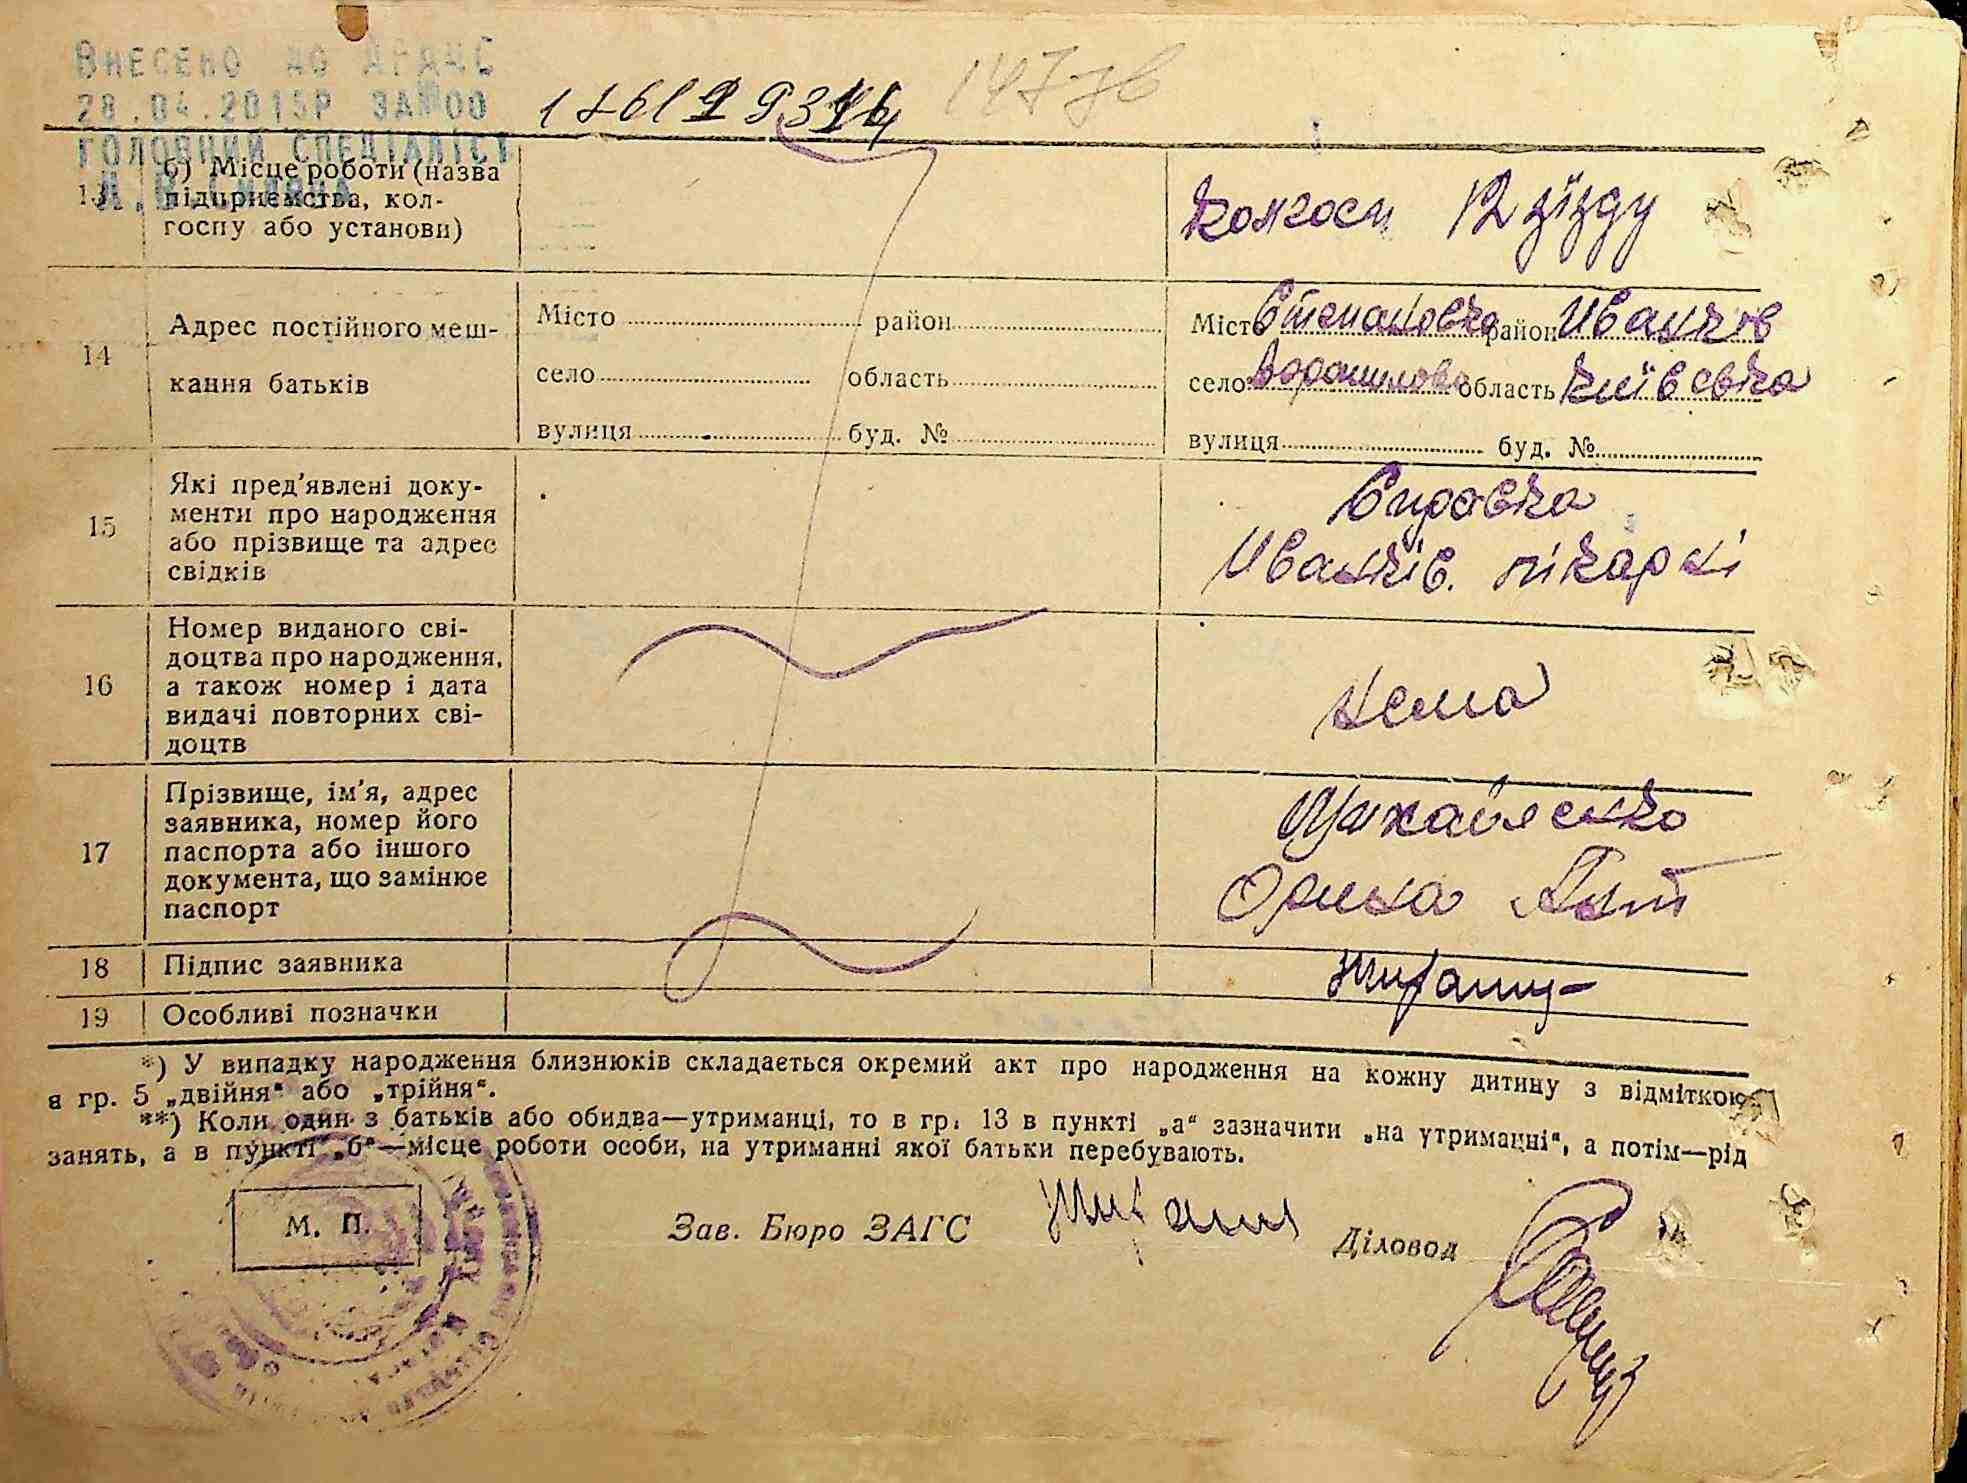 Внесено до ДРАЦС
28.04.2015р за №00
головний спеціаліст
14776
13
б) Місце роботи (назва
підприємства, кол-
госпу або установи)
колгосп 12 зїзду
14
Адрес постійного меш-
кання батьків
Місто район
село область
вулиця буд. №
Місто Степановка район Иванков
село Ворошилово область Київсвка
вулиця буд. №
15
Які пред'явлені доку-
менти про народження
або прізвище та адрес
свідків
Справка
Иванків. лікарні
16
Номер виданого сві-
доцтва про народження,
а також номер і дата
видачі повторних сві-
доцтв
нема
17
Прізвище, ім'я, адрес
заявника, номер його
паспорта або іншого
документа, що замінює
паспорт
Михайленко
Орина Ант
18
Підпис заявника
19
Особливі позначки
*) У випадку народження близнюків складається окремий акт про народження на кожну дитину з відміткою
в гр. 5 „двійня“ або „трійня“.
**) Коли один з батьків або обидва—утриманці, то в гр. 13 в пункті „а“ зазначити „на утриманні“, а потім—рід
занять, а в пункті „б“—місце роботи особи, на утриманні якої батьки перебувають.
М. П.
Зав. Бюро ЗАГС
Діловод